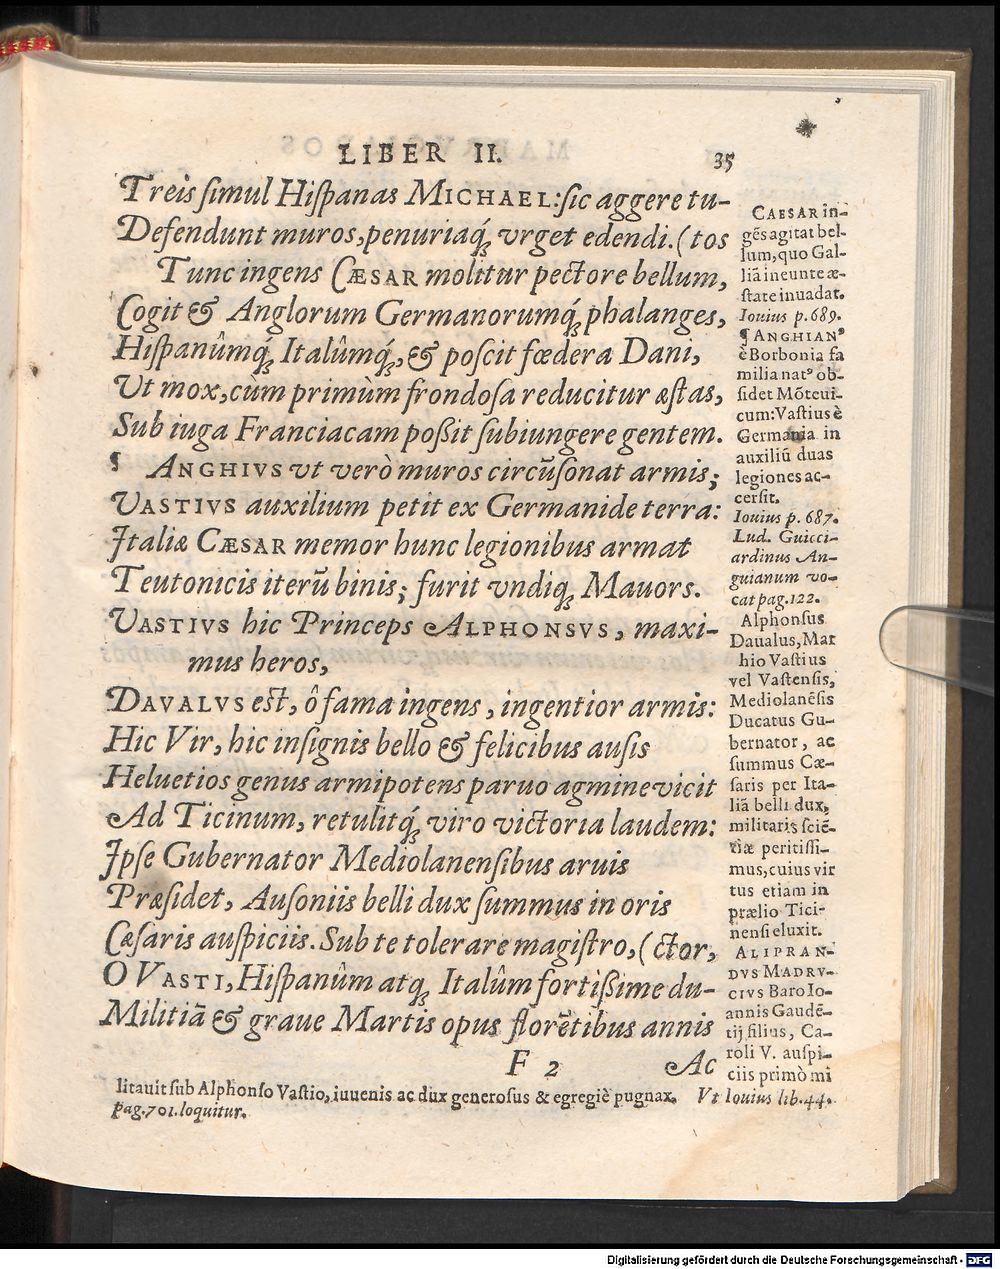 LIBER II. 35
Treis ſimul Hiſpanas MICHAEL: ſic aggere tu-
Defendunt muros, penuriaq́ꝫ vrget edendi. (tos
Tunc ingens CÆSAR molitur pectore bellum,
Cogit & Anglorum Germanorumq́ꝫ phalanges,
Hiſpanûmq́ꝫ Italûmq́ꝫ, & poſcit fœdera Dani,
Ut mox, cum primùm frondoſa reducitur æſtas,
Sub iuga Franciacam poßit ſubiungere gentem.
¶ ANGHIVS vt verò muros circũſonat armis;
VASTIVS auxilium petit ex Germanide terra:
Italiæ CÆSAR memor hunc legionibus armat
Teutonicis iterũ binis; furit vndiqꝫ Mauors.
VASTIVS hic Princeps ALPHONSVS, maxi-
mus heros,
DAVALVS est, ô fama ingens, ingentior armis:
Hic Vir, hic inſignis bello & felicibus auſis
Heluetios genus armipotens paruo agmine vicit
Ad Ticinum, retulitq́ꝫ viro victoria laudem:
Ipſe Gubernator Mediolanenſibus aruis
Præſidet, Auſoniis belli dux ſummus in oris
Cæſaris auſpiciis. Sub te tolerare magiſtro, (ctor,
O VASTI, Hiſpanûm atqꝫ Italûm fortißime du-
Militiã & graue Martis opus florẽtibus annis
F 2 Ac
CAESAR in-
gẽs agitat bel-
lum, quo Gal-
liã ineunte æ-
ſtate inuadat.
Iouius p. 689.
¶ ANGHIANꝰ
è Borbonia fa
milia natꝰ ob-
ſidet Mõteui-
cum: Vaſtius è
Germania in
auxiliũ duas
legiones ac-
cerſit.
Iouius p. 687.
Lud. Guicci-
ardinus An-
guianum vo-
cat pag. 122.
Alphonſus
Daualus, Mar
hio Vaſtius
vel Vaſtenſis,
Mediolanẽſis
Ducatus Gu-
bernator, ac
ſummus Cæ-
ſaris per Ita-
liã belli dux,
militaris ſciẽ-
tiæ peritiſſi-
mus, cuius vir
tus etiam in
prælio Tici-
nenſi eluxit.
ALIPRAN-
DVS MADRV-
CIVS Baro Io-
annis Gaudẽ-
tij filius, Ca-
roli V. auſpi-
ciis primò mi
litauit ſub Alphonſo Vaſtio, iuuenis ac dux generoſus & egregiè pugnax. Vt Iouius lib. 44.
pag. 701. loquitur.
Digitalisierung gefördert durch die Deutsche Forschungsgemeinschaft - DFG